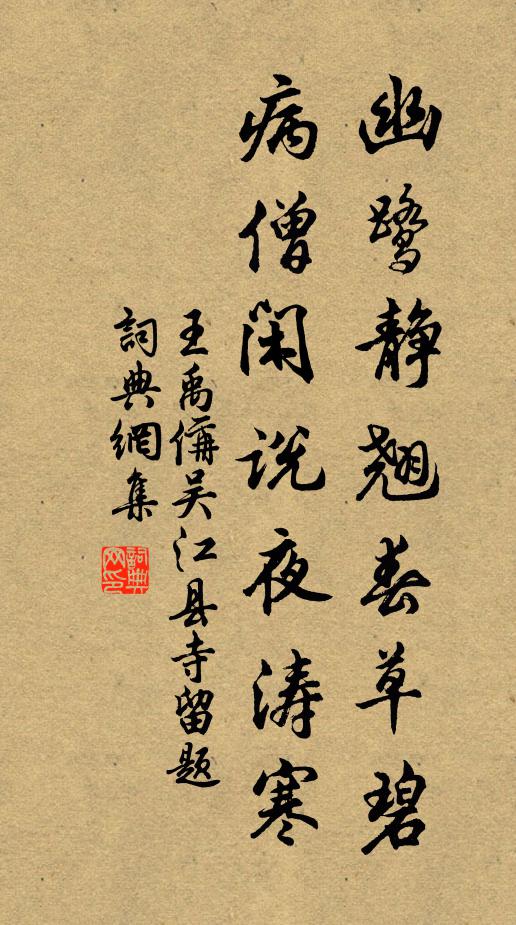 幽鹭静翘春草碧
病僧闲说夜涛寒
王禹偁吴江县寺留题
詞典網集
詞典網印